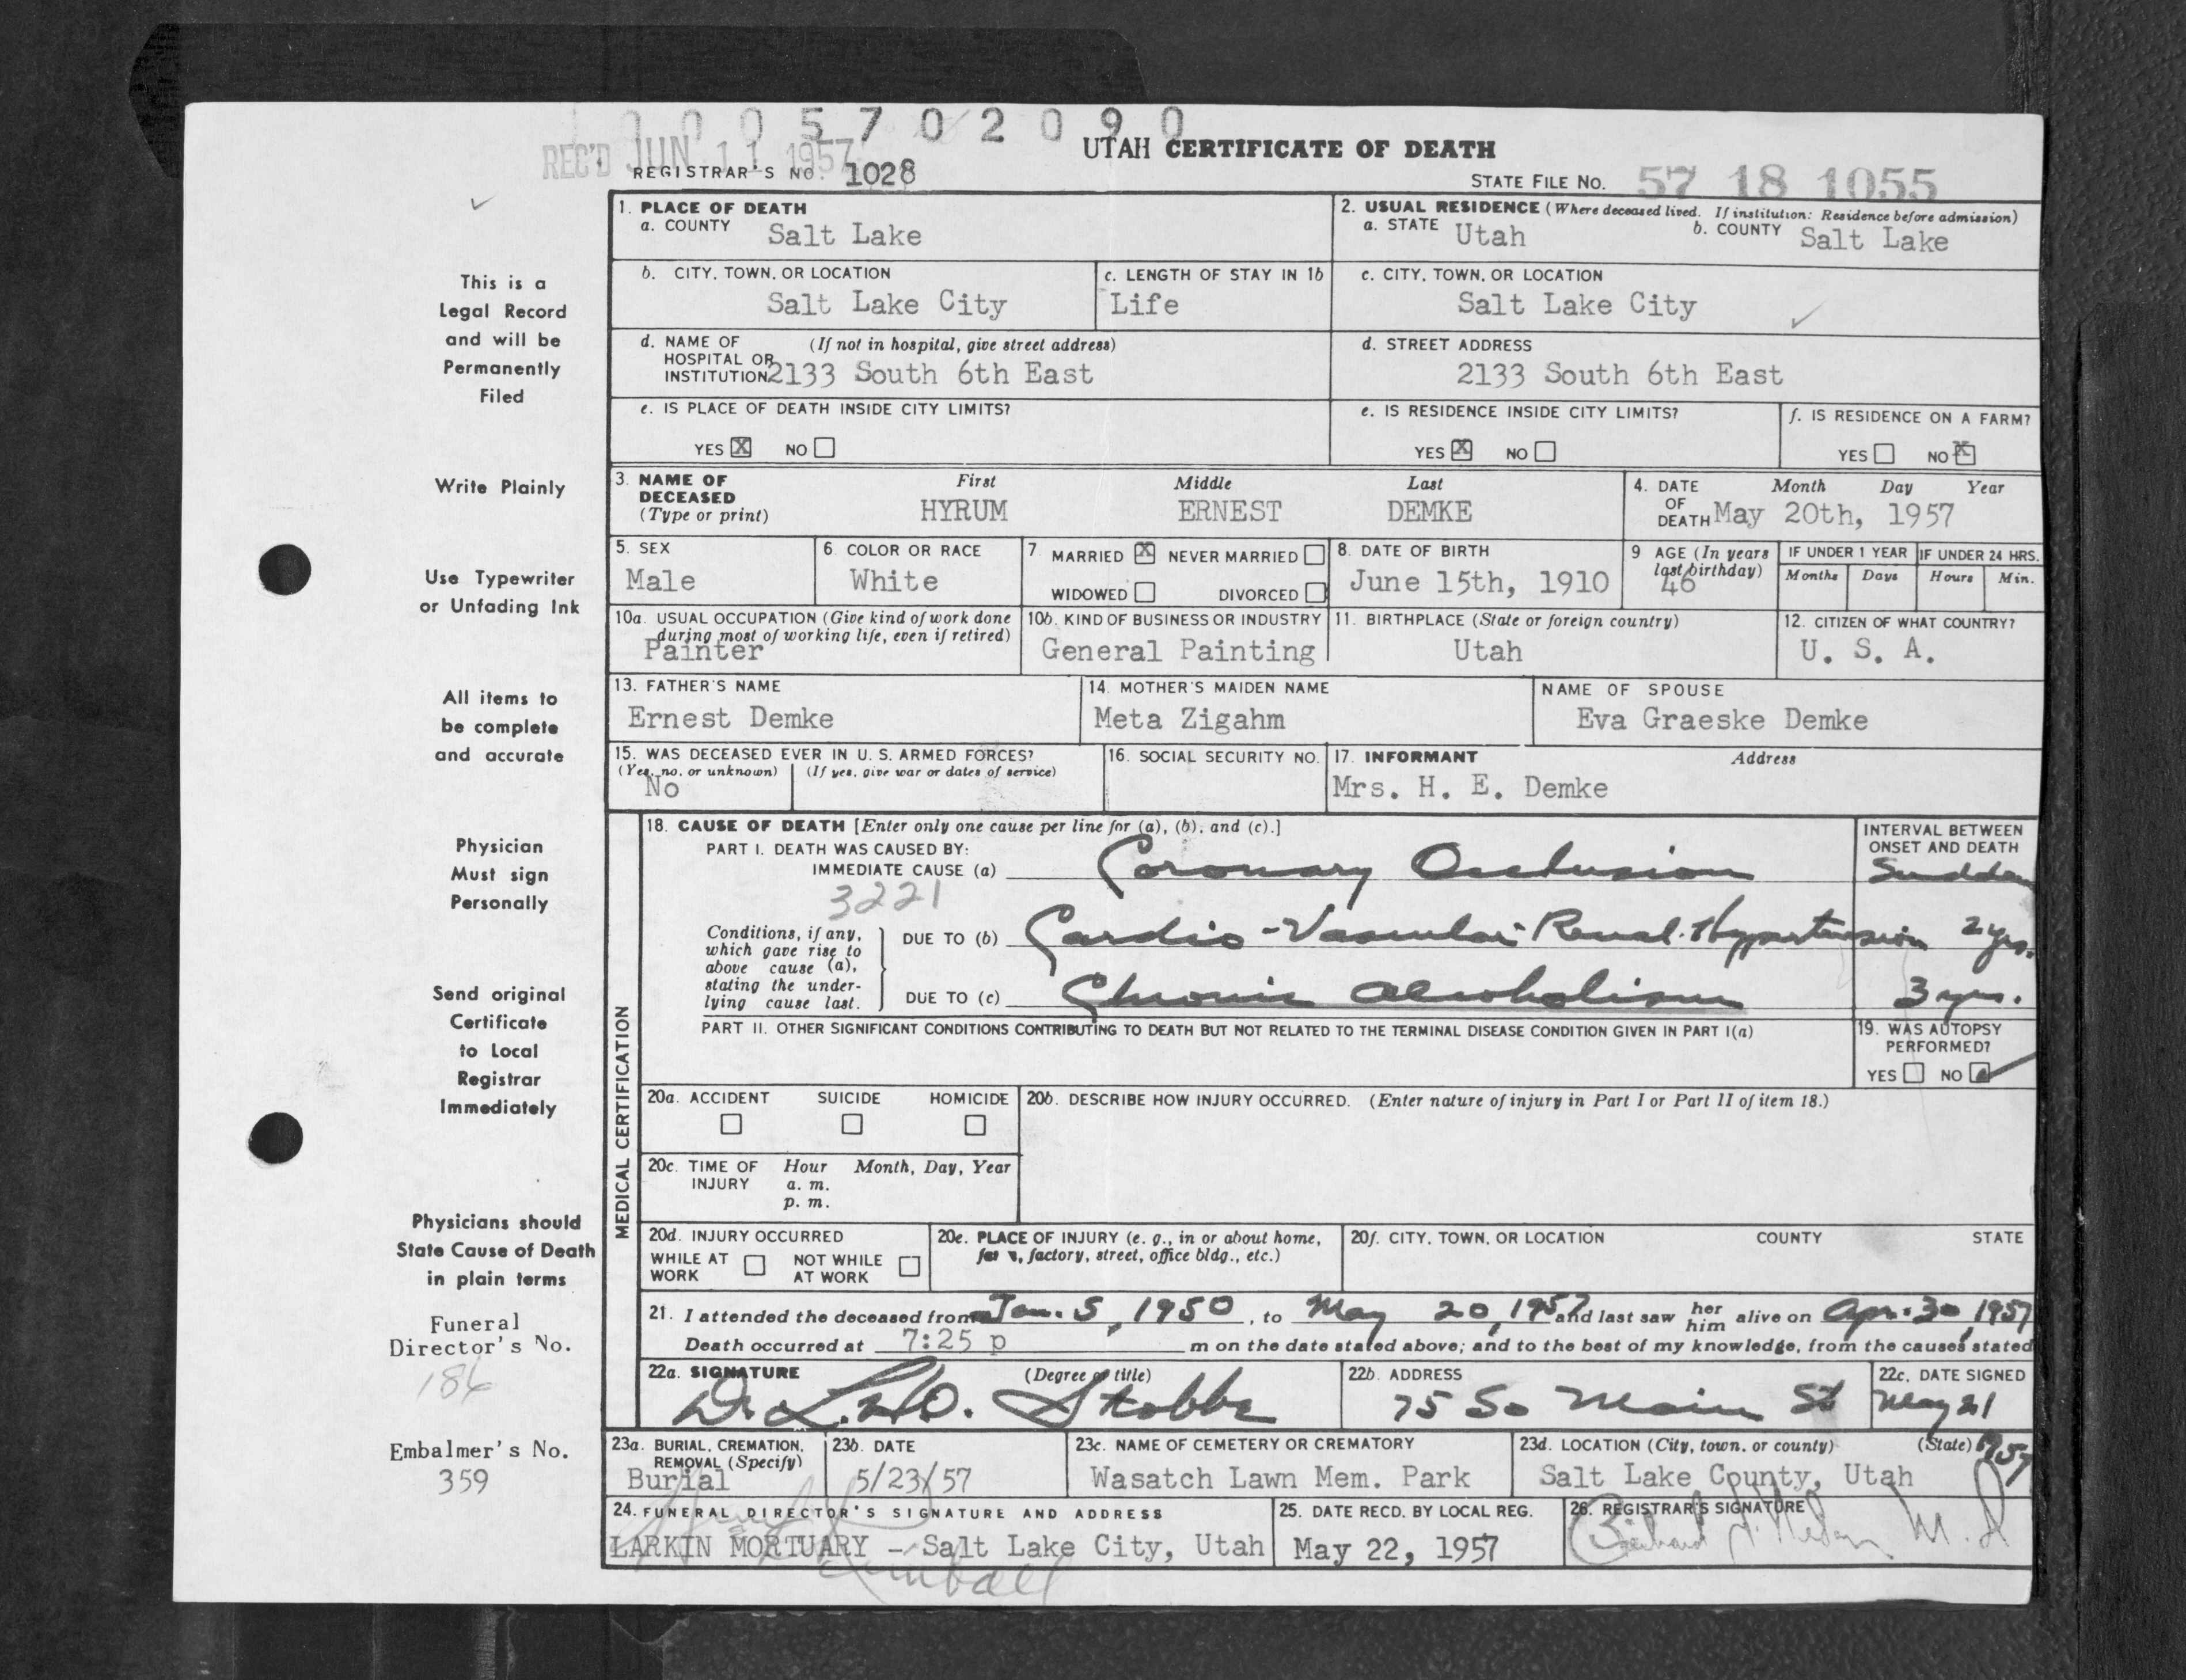 1 0 0 5 7 0 2 0 9 0
REC'D JUN 11 1957
UTAH CERTIFICATE OF DEATH
REGISTRAR'S NO. 1028
STATE FILE NO. 57 18 1055
1. PLACE OF DEATH
a. COUNTY Salt Lake
2. USUAL RESIDENCE (Where deceased lived. If institution: Residence before admission)
a. STATE Utah b. COUNTY Salt Lake
b. CITY, TOWN, OR LOCATION
Salt Lake City
c. LENGTH OF STAY IN 1b
Life
c. CITY, TOWN, OR LOCATION
Salt Lake City
d. NAME OF HOSPITAL OR INSTITUTION (If not in hospital, give street address)
2133 South 6th East
d. STREET ADDRESS
2133 South 6th East
e. IS PLACE OF DEATH INSIDE CITY LIMITS?
YES X NO
e. IS RESIDENCE INSIDE CITY LIMITS?
YES X NO
f. IS RESIDENCE ON A FARM?
YES NO X
3. NAME OF DECEASED (Type or print)
First Middle Last
HYRUM ERNEST DEMKE
4. DATE OF DEATH Month Day Year
May 20th, 1957
5. SEX
Male
6. COLOR OR RACE
White
7. MARRIED X NEVER MARRIED
WIDOWED DIVORCED
8. DATE OF BIRTH
June 15th, 1910
9 AGE (In years last birthday)
46
IF UNDER 1 YEAR
Months Days
IF UNDER 24 HRS.
Hours Min.
10a. USUAL OCCUPATION (Give kind of work done during most of working life, even if retired)
Painter
10b. KIND OF BUSINESS OR INDUSTRY
General Painting
11. BIRTHPLACE (State or foreign country)
Utah
12. CITIZEN OF WHAT COUNTRY?
U. S. A.
13. FATHER'S NAME
Ernest Demke
14. MOTHER'S MAIDEN NAME
Meta Zigahm
NAME OF SPOUSE
Eva Graeske Demke
15. WAS DECEASED EVER IN U. S. ARMED FORCES?
(Yes, no, or unknown) (If yes, give war or dates of service)
No
16. SOCIAL SECURITY NO.
17. INFORMANT Address
Mrs. H. E. Demke
MEDICAL CERTIFICATION
18. CAUSE OF DEATH [Enter only one cause per line for (a), (b), and (c).]
PART I. DEATH WAS CAUSED BY:
IMMEDIATE CAUSE (a) Coronary Occlusion
INTERVAL BETWEEN ONSET AND DEATH
Sudden
3221
Conditions, if any, which gave rise to above cause (a), stating the underlying cause last.
DUE TO (b) Cardio-Vascular Renal Hypertension 2 yrs.
DUE TO (c) Chronic Alcoholism 3 yrs.
PART II. OTHER SIGNIFICANT CONDITIONS CONTRIBUTING TO DEATH BUT NOT RELATED TO THE TERMINAL DISEASE CONDITION GIVEN IN PART I(a)
19. WAS AUTOPSY PERFORMED?
YES NO
20a. ACCIDENT SUICIDE HOMICIDE
20b. DESCRIBE HOW INJURY OCCURRED. (Enter nature of injury in Part I or Part II of item 18.)
20c. TIME OF INJURY Hour Month, Day, Year
a. m.
p. m.
20d. INJURY OCCURRED
WHILE AT WORK NOT WHILE AT WORK
20e. PLACE OF INJURY (e. g., in or about home, farm, factory, street, office bldg., etc.)
20f. CITY, TOWN, OR LOCATION COUNTY STATE
21. I attended the deceased from Jan. 5, 1950, to May 20, 1957 and last saw her him alive on Apr. 30, 1957
Death occurred at 7:25 p m on the date stated above; and to the best of my knowledge, from the causes stated
22a. SIGNATURE (Degree or title)
Stobbe
22b. ADDRESS
75 So Main St
22c. DATE SIGNED
May 21 1957
23a. BURIAL, CREMATION, REMOVAL (Specify)
Burial
23b. DATE
5/23/57
23c. NAME OF CEMETERY OR CREMATORY
Wasatch Lawn Mem. Park
23d. LOCATION (City, town, or county) (State)
Salt Lake County, Utah
24. FUNERAL DIRECTOR'S SIGNATURE AND ADDRESS
LARKIN MORTUARY - Salt Lake City, Utah
Kimball
25. DATE RECD. BY LOCAL REG.
May 22, 1957
26. REGISTRAR'S SIGNATURE
M. D
This is a
Legal Record
and will be
Permanently
Filed
Write Plainly
Use Typewriter
or Unfading Ink
All items to
be complete
and accurate
Physician
Must sign
Personally
Send original
Certificate
to Local
Registrar
Immediately
Physicians should
State Cause of Death
in plain terms
Funeral
Director's No.
186
Embalmer's No.
359